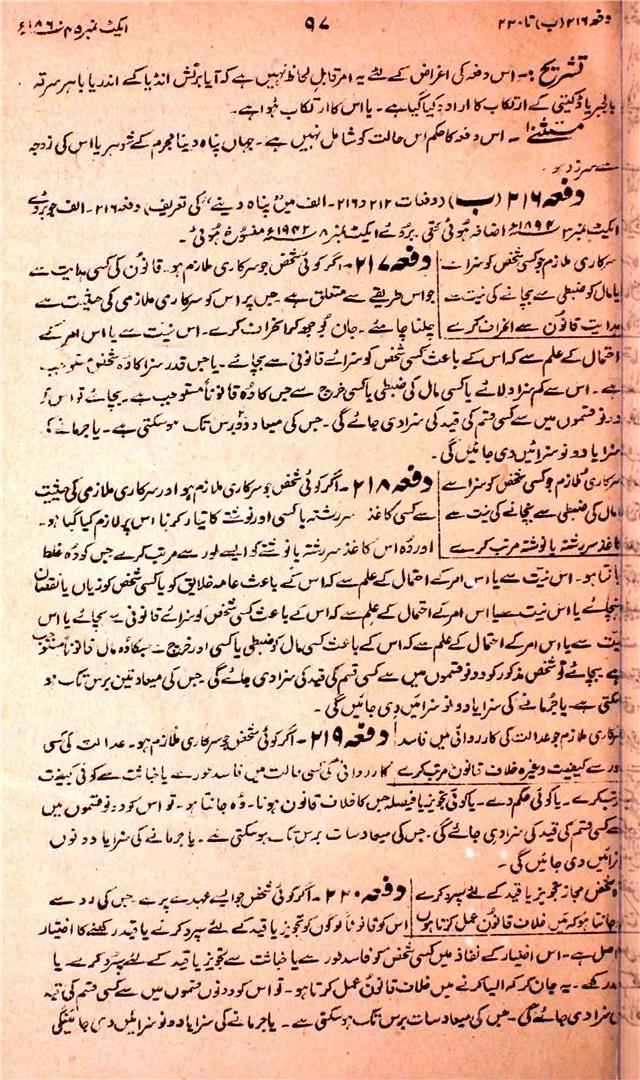 دفعہ ۲۱۶ (ب) تا ۲۲۰
۹۷
ایکٹ نمبر ۴۵ ۱۸۶۰ء
تشریح :۔ اس دفعہ کی اغراض کے لئے یہ امر قابل لحاظ نہیں ہے کہ آیا برٹش انڈیا کے اندر یا باہر سرقہ
بالجبر یا ڈکیتی کے ارتکاب کا ارادہ کیا گیا ہے۔ یا اس کا ارتکاب ہوا ہے۔
مستثنےٰ۔ اس دفعہ کا حکم اس حالت کو شامل نہیں ہے۔ جہاں پناہ دینا مجرم کے شوہر یا اس کی زوجہ
سے سرزد ہو۔
دفعہ ۲۱۶ (ب) (دفعات ۲۱۲ و ۲۱۶۔ الف میں "پناہ دینے" کی تعریف) دفعہ ۲۱۶۔ الف جو بروئے
ایکٹ نمبر ۳ ۱۸۹۴ء اضافہ ہوئی تھی۔ بروئے ایکٹ نمبر ۸ ۱۹۴۲ء منسوخ ہوئی۔
سرکاری ملازم جو کسی شخص کو سزا سے
یا مال کو ضبطی سے بچانے کی نیت سے
ہدایت قانون سے انحراف کرے
دفعہ ۲۱۷۔ اگر کوئی شخص جو سرکاری ملازم ہو۔ قانون کی کسی ہدایت سے
جو اس طریقے سے متعلق ہے جس پر اس کو سرکاری ملازمی کی حیثیت سے
چلنا چاہئے۔ جان بوجھ کر انحراف کرے۔ اس نیت سے یا اس امر کے
احتمال کے علم سے کہ اس کے باعث کسی شخص کو سزائے قانونی سے بچائے۔ یا جس قدر سزا کا وہ شخص مستوجب
ہے۔ اس سے کم سزا دلائے یا کسی مال کی ضبطی یا کسی خرچ سے جس کا وہ قانوناً مستوجب ہے۔ بچائے تو اس کو
دونو قسموں میں سے کسی قسم کی قید کی سزا دی جائے گی۔ جس کی میعاد دو برس تک ہو سکتی ہے۔ یا جرمانے کی
سزا یا دونو سزائیں دی جائیں گی۔
سرکاری ملازم جو کسی شخص کو سزا سے
یا مال کی ضبطی سے بچانے کی نیت سے
کاغذ سررشتہ یا نوشتہ مرتب کرے
دفعہ ۲۱۸۔ اگر کوئی شخص جو سرکاری ملازم ہو اور سرکاری ملازمی کی حیثیت
سے کسی کاغذ سررشتہ یا کسی اور نوشتہ کا تیار کرنا اس پر لازم کیا گیا ہو۔
اور وہ اس کاغذ سررشتہ یا نوشتے کو ایسے طور سے مرتب کرے جس کو وہ غلط
جانتا ہو۔ اس نیت سے یا اس امر کے احتمال کے علم سے کہ اس کے باعث عامہ خلایق کو یا کسی شخص کو زیاں یا نقصان
پہنچائے یا اس نیت سے یا اس امر کے احتمال کے علم سے کہ اس کے باعث کسی شخص کو سزائے قانونی سے بچائے یا اس
نیت سے یا اس امر کے احتمال کے علم سے کہ اس کے باعث کسی مال کو ضبطی یا کسی اور خرچ سے جس کا وہ مال قانوناً مستوجب
ہے بچائے تو شخص مذکور کو دونو قسموں میں سے کسی قسم کی قید کی سزا دی جائے گی جس کی میعاد تین برس تک ہو
سکتی ہے۔ یا جرمانے کی سزا یا دونو سزائیں دی جائیں گی۔
سرکاری ملازم جو عدالت کی کارروائی میں فاسد
طور سے کیفیت وغیرہ خلاف قانون مرتب کرے
دفعہ ۲۱۹۔ اگر کوئی شخص جو سرکاری ملازم ہو۔ عدالت کی کسی
کارروائی کی کسی حالت میں فاسد طور سے یا خباثت سے کوئی کیفیت
مرتب کرے۔ یا کوئی حکم دے۔ یا کوئی تجویز یا فیصلہ جس کا خلاف قانون ہونا۔ وہ جانتا ہو۔ تو اس کو دونو قسموں میں
سے کسی قسم کی قید کی سزا دی جائے گی۔ جس کی میعاد سات برس تک ہو سکتی ہے۔ یا جرمانے کی سزا یا دونوں
سزائیں دی جائیں گی۔
شخص مجاز تجویز یا قید کے لئے سپرد کرے
جانتا ہو کہ میں خلاف قانون عمل کرتا ہوں
دفعہ ۲۲۰۔ اگر کوئی شخص جو ایسے عہدے پر ہے جس کی رو سے
اس کو قانوناً لوگوں کو تجویز یا قید کے لئے سپرد کرنے یا قید رکھنے کا اختیار
حاصل ہے۔ اس اختیار کے نفاذ میں کسی شخص کو فاسد طور سے یا خباثت سے تجویز یا قید کے لئے سپرد کرے یا
قید رکھے۔ یہ جان کر کہ ایسا کرنے میں خلاف قانون عمل کرتا ہو۔ تو اس کو دونوں قسموں میں سے کسی قسم کی قید
کی سزا دی جائے گی۔ جس کی میعاد سات برس تک ہو سکتی ہے۔ یا جرمانے کی سزا یا دونو سزائیں دی جائینگی